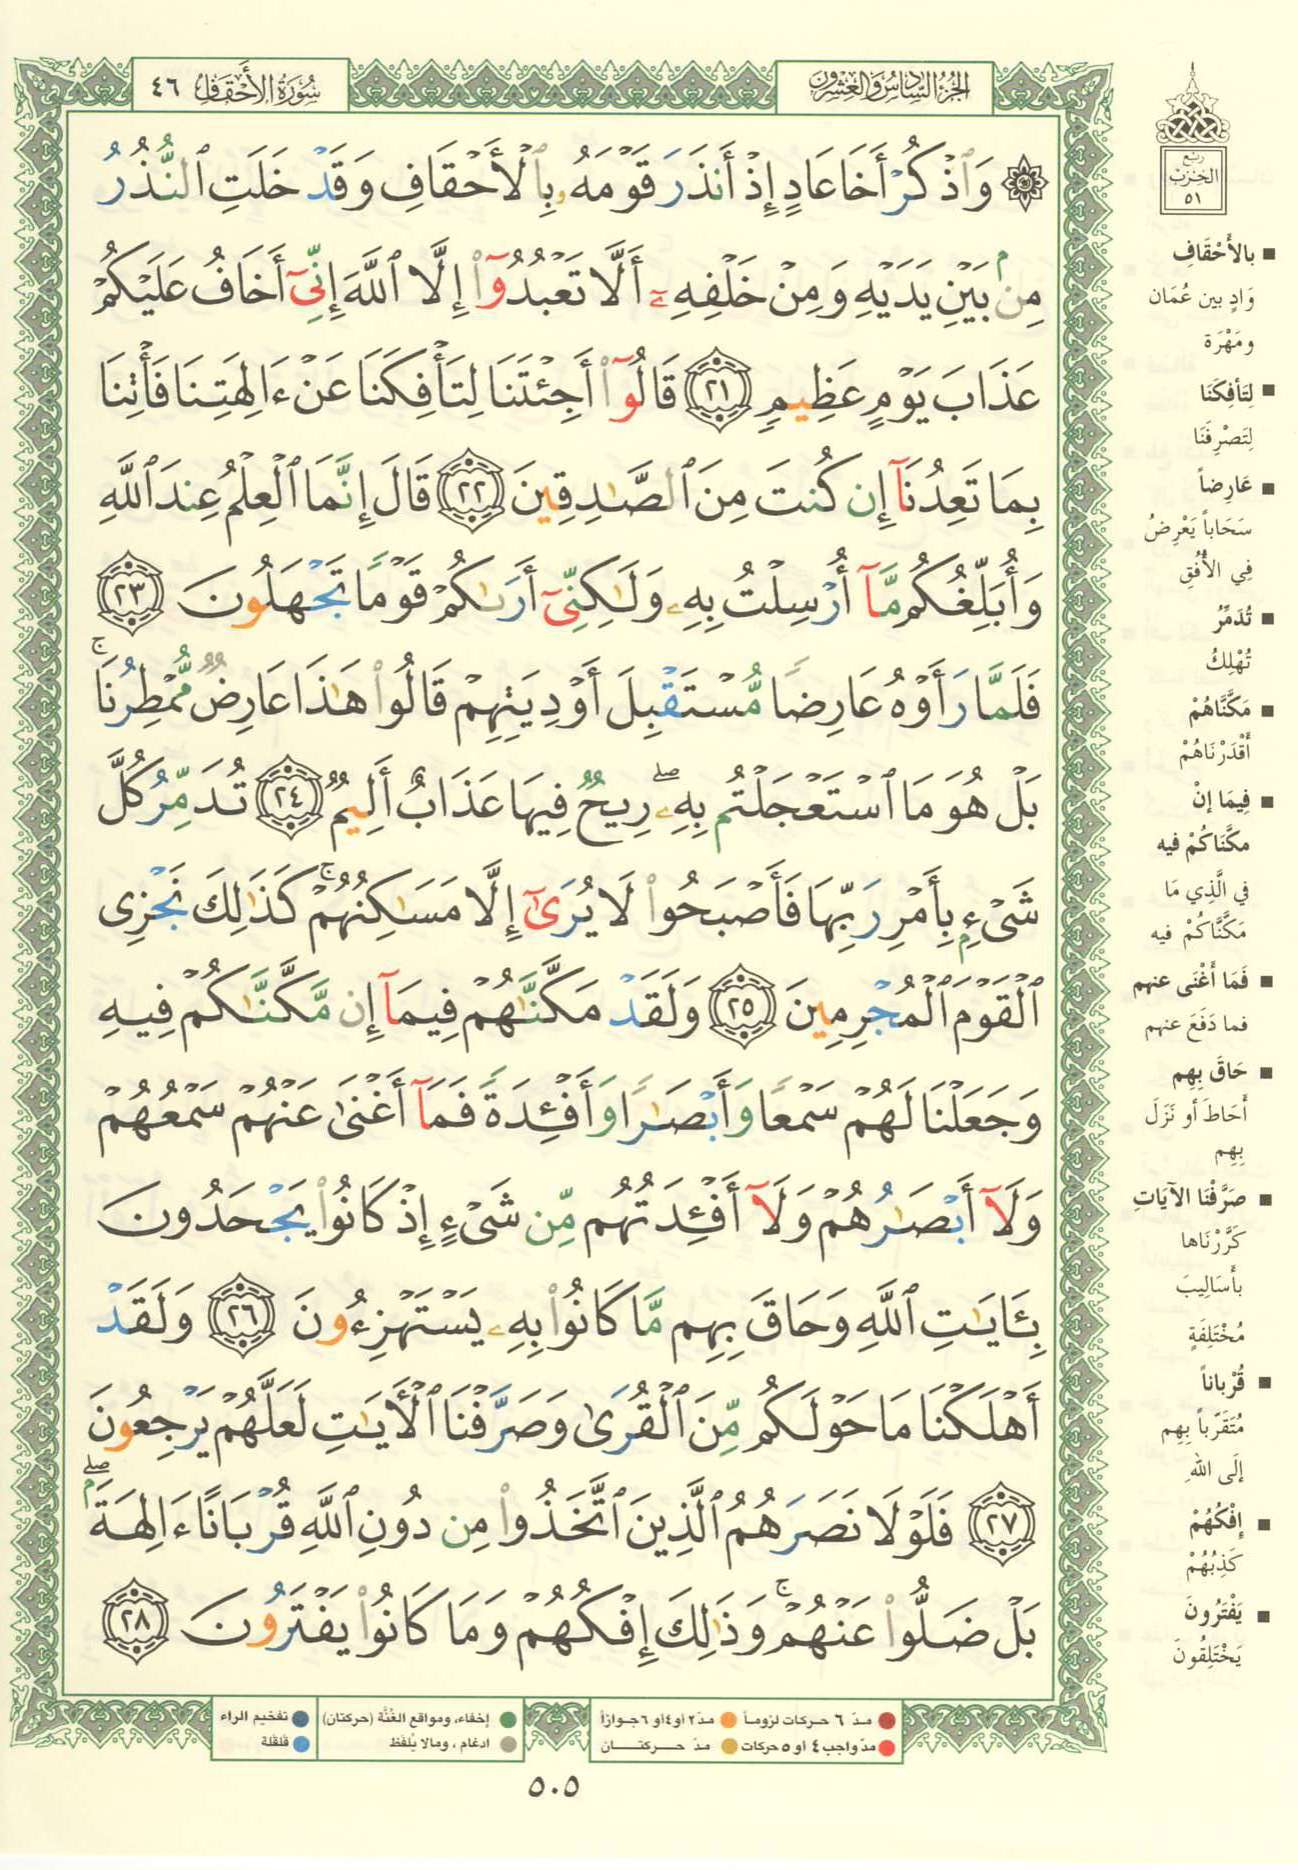 الجزء السادس والعشرون
سورة الأحقاف ٤٦
۞ وَٱذْكُرْ أَخَا عَادٍ إِذْ أَنذَرَ قَوْمَهُۥ بِٱلْأَحْقَافِ وَقَدْ خَلَتِ ٱلنُّذُرُ
مِنۢ بَيْنِ يَدَيْهِ وَمِنْ خَلْفِهِۦٓ أَلَّا تَعْبُدُوٓا۟ إِلَّا ٱللَّهَ إِنِّىٓ أَخَافُ عَلَيْكُمْ
عَذَابَ يَوْمٍ عَظِيمٍ ﴿٢١﴾ قَالُوٓا۟ أَجِئْتَنَا لِتَأْفِكَنَا عَنْ ءَالِهَتِنَا فَأْتِنَا
بِمَا تَعِدُنَآ إِن كُنتَ مِنَ ٱلصَّٰدِقِينَ ﴿٢٢﴾ قَالَ إِنَّمَا ٱلْعِلْمُ عِندَ ٱللَّهِ
وَأُبَلِّغُكُم مَّآ أُرْسِلْتُ بِهِۦ وَلَٰكِنِّىٓ أَرَىٰكُمْ قَوْمًا تَجْهَلُونَ ﴿٢٣﴾
فَلَمَّا رَأَوْهُ عَارِضًا مُّسْتَقْبِلَ أَوْدِيَتِهِمْ قَالُوا۟ هَٰذَا عَارِضٌ مُّمْطِرُنَا ۚ
بَلْ هُوَ مَا ٱسْتَعْجَلْتُم بِهِۦ ۖ رِيحٌ فِيهَا عَذَابٌ أَلِيمٌ ﴿٢٤﴾ تُدَمِّرُ كُلَّ
شَىْءٍۭ بِأَمْرِ رَبِّهَا فَأَصْبَحُوا۟ لَا يُرَىٰٓ إِلَّا مَسَٰكِنُهُمْ ۚ كَذَٰلِكَ نَجْزِى
ٱلْقَوْمَ ٱلْمُجْرِمِينَ ﴿٢٥﴾ وَلَقَدْ مَكَّنَّٰهُمْ فِيمَآ إِن مَّكَّنَّٰكُمْ فِيهِ
وَجَعَلْنَا لَهُمْ سَمْعًا وَأَبْصَٰرًا وَأَفْـِٔدَةً فَمَآ أَغْنَىٰ عَنْهُمْ سَمْعُهُمْ
وَلَآ أَبْصَٰرُهُمْ وَلَآ أَفْـِٔدَتُهُم مِّن شَىْءٍ إِذْ كَانُوا۟ يَجْحَدُونَ
بِـَٔايَٰتِ ٱللَّهِ وَحَاقَ بِهِم مَّا كَانُوا۟ بِهِۦ يَسْتَهْزِءُونَ ﴿٢٦﴾ وَلَقَدْ
أَهْلَكْنَا مَا حَوْلَكُم مِّنَ ٱلْقُرَىٰ وَصَرَّفْنَا ٱلْءَايَٰتِ لَعَلَّهُمْ يَرْجِعُونَ
﴿٢٧﴾ فَلَوْلَا نَصَرَهُمُ ٱلَّذِينَ ٱتَّخَذُوا۟ مِن دُونِ ٱللَّهِ قُرْبَانًا ءَالِهَةًۢ ۖ
بَلْ ضَلُّوا۟ عَنْهُمْ ۚ وَذَٰلِكَ إِفْكُهُمْ وَمَا كَانُوا۟ يَفْتَرُونَ ﴿٢٨﴾
ربع
الحزب
٥١
■ بالأَحْقَافِ
وَادٍ بين عُمَان
ومَهْرَة
■ لِتَأفِكَنَا
لِتَصْرِفَنَا
■ عَارِضاً
سَحَاباً يَعْرِضُ
فِي الأُفُقِ
■ تُدَمِّرُ
تُهْلِكُ
■ مَكَّنَّاهُمْ
أَقْدَرْنَاهُمْ
■ فِيمَا إنْ
مكَّنَّاكُمْ فيه
في الَّذِي مَا
مَكَّنَّاكُمْ فيه
■ فَمَا أَغْنَى عنهم
فما دَفَعَ عنهم
■ حَاقَ بِهِم
أَحَاطَ أو نَزَلَ
بِهِم
■ صَرَّفْنَا الآيَاتِ
كَرَّرْنَاها
بأَسَالِيبَ
مُخْتَلِفَةٍ
■ قُرْباناً
مُتَقَرَّباً بِهِم
إلَى اللهِ
■ إِفْكُهُمْ
كَذِبُهُمْ
■ يَفْتَرُونَ
يَخْتَلِقُونَ
مدّ ٦ حركات لزوماً مدّ ٢ أو ٤ أو ٦ جوازاً
مدّ واجب ٤ أو ٥ حركات مدّ حركتان
إخفاء، ومواقع الغُنَّة (حركتان) تفخيم الراء
ادغام ، ومالا يُلفَظ قلقلة
٥٠٥